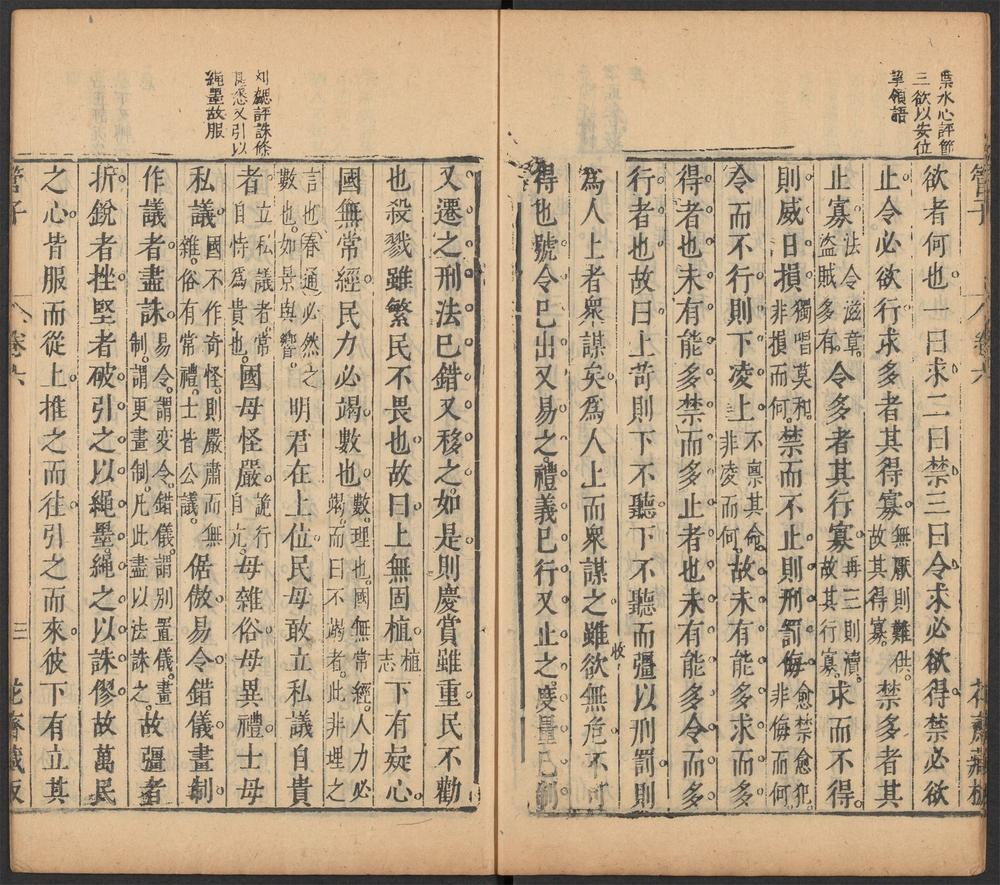 葉水心評節
三欲以安位
莫領語
管子
卷六
花齋藏板
欲者何也一曰求二曰禁三曰令求必欲得禁必欲
止令必欲行求多者其得寡無厭則難供故其得寡禁多者其
止寡法令滋章盜賊多有令多者其行寡再三則瀆故其行寡求而不得
則威日損獨唱莫和非損而何禁而不止則刑罰侮愈禁愈犯非侮而何
令而不行則下凌上不稟其命非凌而何故未有能多求而多
得者也未有能多禁而多止者也未有能多令而多
行者也故曰上苛則下不聽下不聽而彊以刑罰則
為人上者眾謀矣為人上而眾謀之雖欲無危不可
得也號令已出又易之禮義已行又止之度量已制
又遷之刑法已錯又移之如是則慶賞雖重民不勸
也殺戮雖繁民不畏也故曰上無固植植志下有疑心
國無常經民力必竭數也數理也國無常經人力必竭而曰不竭者此非理之
言也春通必然之數也如景與響明君在上位民毋敢立私議自貴
者立私議者常自恃為貴也國毋怪嚴詭行自亢毋雜俗毋異禮士毋
私議國不作奇怪則嚴肅而無雜俗有常禮士皆公議倨傲易令錯儀畫制
作議者盡誅易令謂變令錯儀謂別置儀畫制謂更畫制凡此盡以法誅之故彊者
折銳者挫堅者破引之以繩墨繩之以誅僇故萬民
之心皆服而從上推之而往引之而來彼下有立其
劉勰評誅條
具悉又引以
繩墨故服
管子
卷六
三
花齋藏板